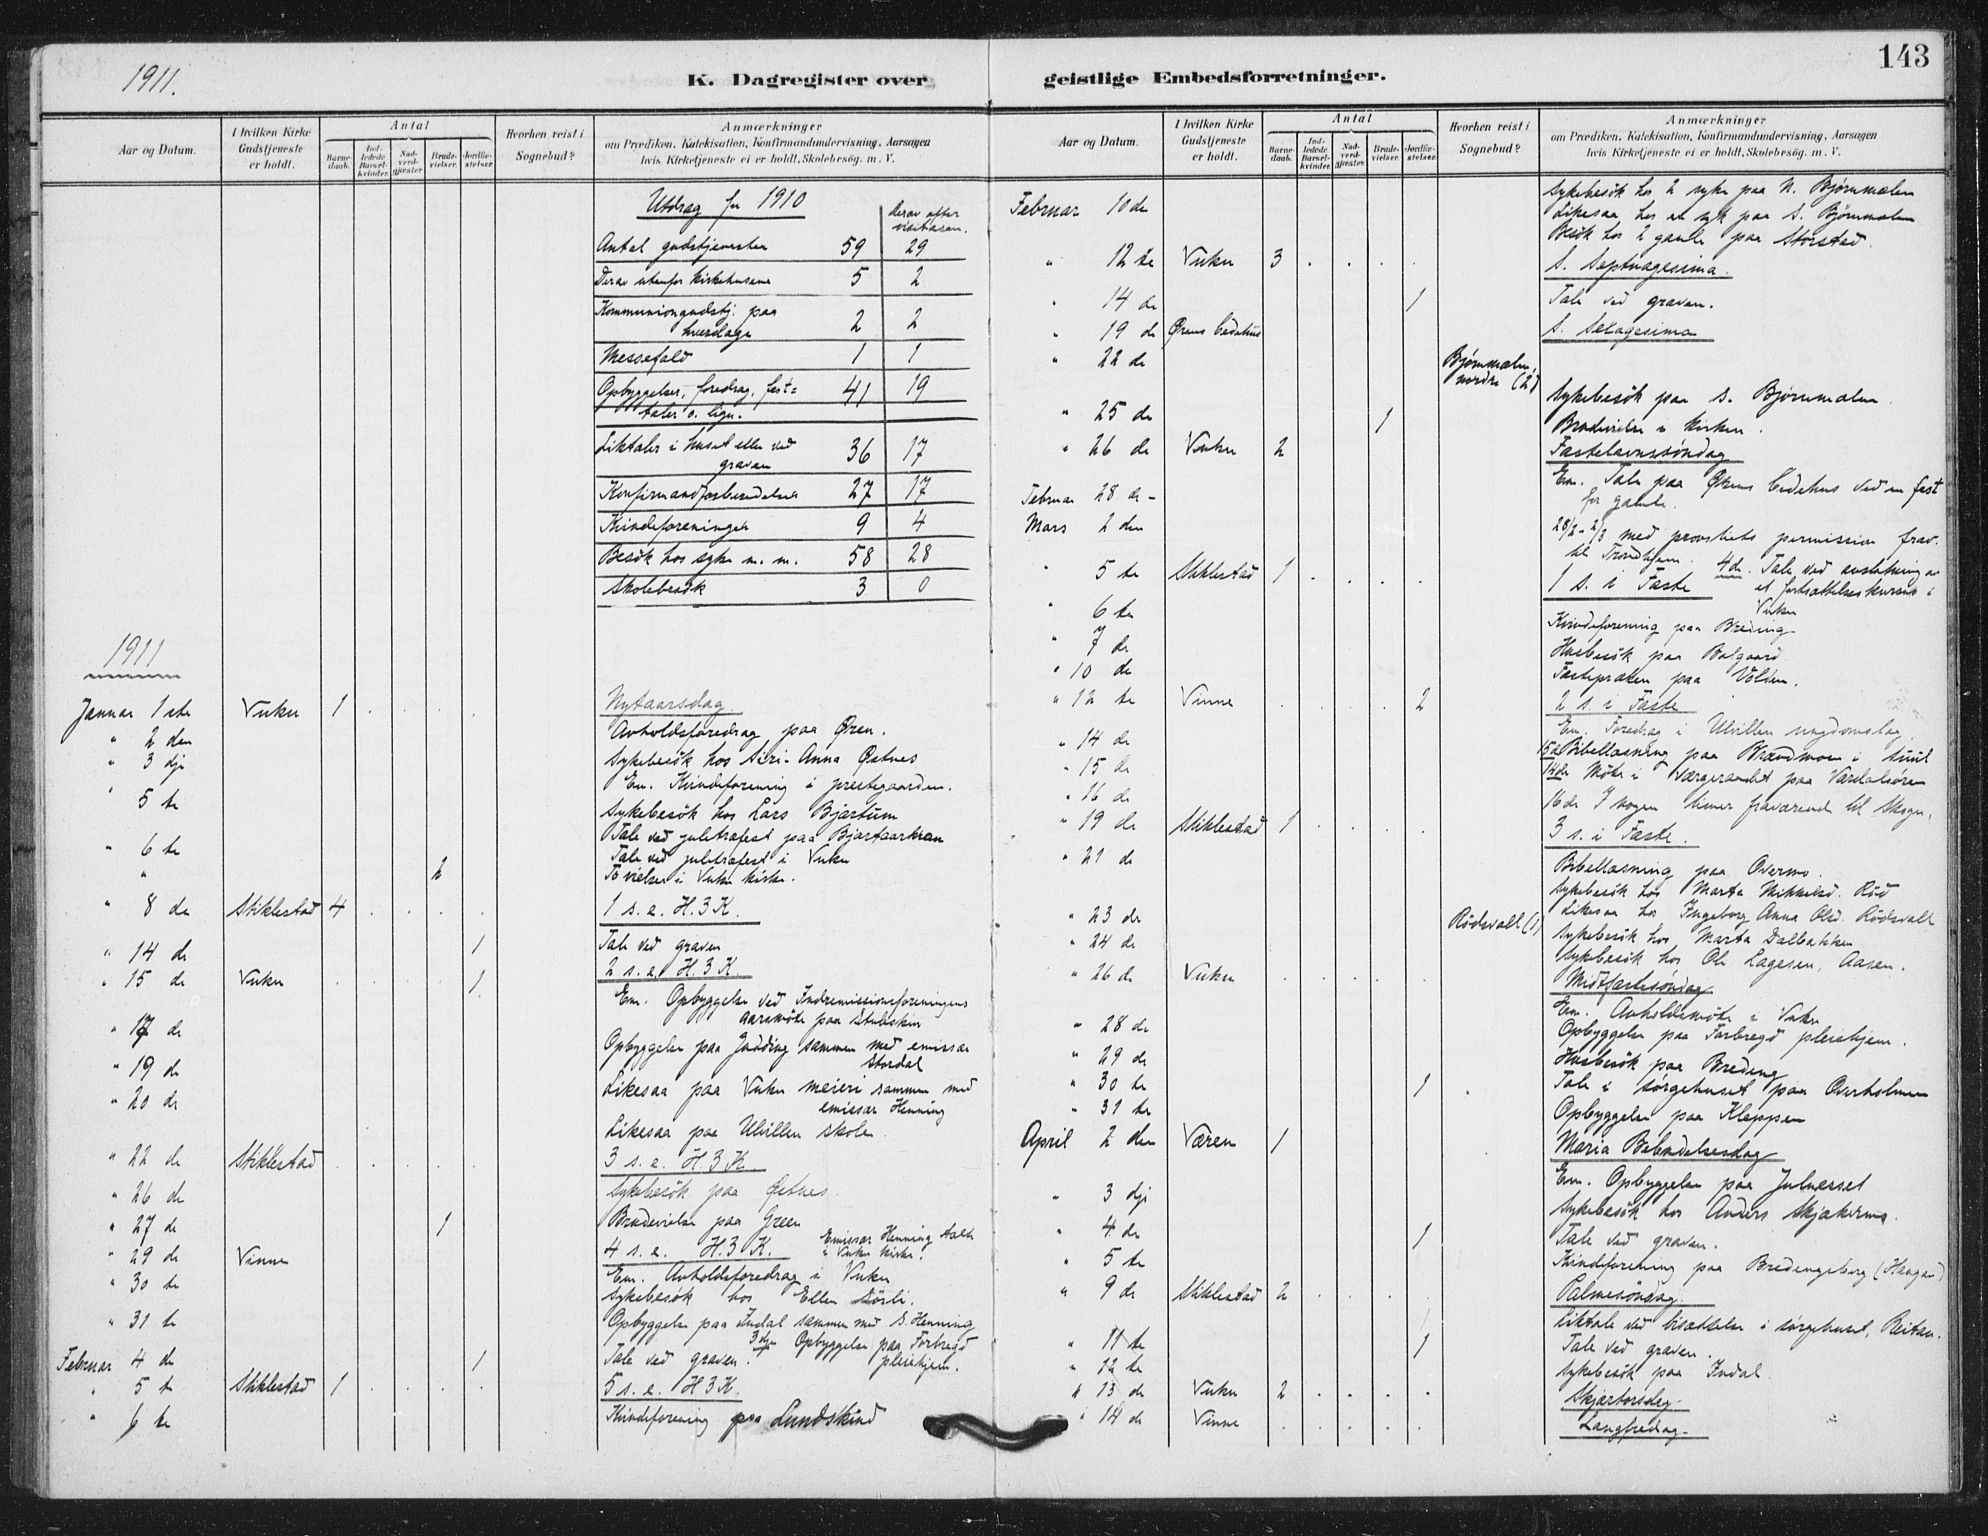 1911.
K. Dagregister over
Aar og Datum.
I hvilken Kirke Gudstjeneste er holdt.
Antal
Barne- daab.
Ind- ledede Barsel- kvinder.
Nad- verd- gjæster.
Brude- vielser.
Jordfæ- stelser.
Hvorhen reist i Sognebud?
Anmærkninger
om Prædiken, Katekisation, Konfirmandundervisning, Aarsagen
hvis Kirketjeneste ei er holdt, Skolebesøg. m. V.
Utdrag for 1910
derav efter visitasen.
Antal gudstjenester 59 29
Derav utenfor kirkehusene 5 2
Kommuniongudstj. paa
hverdage 2 2
Messefald 1 1
Opbyggelser, foredrag, fest=
taler o. lign. 41 19
Liktaler i huset eller ved
graven 36 17
Konfirmandforberedelse 27 17
Kvindeforeninger 9 4
Besök hos syke m. m. 58 28
Skolebesök 3 0
1911
Januar 1ste Vuku 1 Nytaarsdag
" 2 den Avholdsforedrag paa Øren.
" 3 dje Sykebesök hos Siri-Anna Østnes
Em. Kvindeforening i prestegaarden.
" 5 te Sykebesök hos Lars Bjartum
Tale ved juletræfest paa
" 6 te Tale ved juletræfest i Vuku
" 2 To vielser i Vuku kirke.
" 8 de Stiklestad 4 1 s. e. H. 3 K.
" 14 de 1 Tale ved graven
" 15 de Vuku 1. 2 s. e. H. 3 K.
Em. Opbyggelse ved Indremissionsforeningens
aarsmöte paa Stubskin
" 17 de Opbyggelse paa sammen med emissær
Stordal
" 19 de Likesaa paa Vuku meieri sammen med
emissær Henning
" 20 de Likesaa paa Ulvillen skole.
" 22 de Stiklestad 3 s. e. H. 3 K.
" 26 de Sykebesök paa Østnes.
" 27 de 1 Brudevielse paa Green
" 29 de Vinne 4 s. e. H. 3 K. Emissær Henning talte
i Vuku kirke.
" 30 te Em. Avholdsforedrag i Vuku
Sykebesök hos Ellen Sörli.
" 31 te Opbyggelse paa Indal sammen med S. Henning
3 dje Opbyggelse paa Forbregd
pleiehjem.
Februar 4 de 1 Tale ved graven.
" 5 te Stiklestad 1 5 s. e. H 3 K.
" 6 te Kvindeforening paa Lundskind
143
geistlige Embedsforretninger.
Aar og Datum.
I hvilken Kirke Gudstjeneste er holdt.
Antal
Barne- daab.
Ind- ledede Barsel- kvinder.
Nad- verd- gjæster.
Brude- vielser.
Jordfæ- stelser.
Hvorhen reist i Sognebud?
Anmærkninger
om Prædiken, Katekisation, Konfirmandundervisning, Aarsagen
hvis Kirketjeneste ei er holdt, Skolebesøg. m. V.
Februar 10 de Sykebesök hos 2 syke paa N. Björnmælen
Likesaa hos en syk paa S. Björnmælen
Besök hos 2 gamle paa Storstad.
" 12 te Vuku 3 S. Septuagesima.
" 14 de 1 Tale ved graven.
" 19 de Ørens bedehus S. Sexagesima
" 22 de Björnmælen, nordre (2)
Sykebesök paa S. Björnmælen
" 25 de 1 Brudevielse i kirken.
" 26 de Vuku 2 Fastelavnssöndag
Em. Tale paa Ørens bedehus ved en fest
for gamle.
Februar 28 de -
Mars 2 den 28/2 - 2/3 med provstiets permission frav.
til Trondhjem. 4 de. Tale ved avslutning av
et fortsættelseskursus i
Vuku
" 5 te Stiklestad 1 1 s. i Faste
" 6 te Kvindeforening paa Breding
" 7 de Husbesök paa Balgaard.
" 10 de Fasteprækes paa Volden.
" 12 te Vinne 2 2 s. i Faste
Em. Foredrag i Ulvillen ungdomslag
" 14 de 15 de Bibellæsning paa Brændmoen i Suul
" 15 de 14 de Möte i værgeraadet paa Værdalsören
" 16 de 16 de I nogen timer fraværende til Skogn.
" 19 de Stiklestad 1 3 s. i Faste.
" 21 de Bibellæsning paa Overmo.
Sykebesök hos Marta Mikkelsd. Röd
" 23 de Rödsvall (1) Likesaa hos Ingeborg Anna Olsd. Rödsvall
" 24 de Sykebesök hos Marta Dalbakken
Sykebesök hos Ole Lagesen, Aasen.
" 26 de Vuku Midtfastesöndag
Em. Avholdsmöte i Vuku
" 28 de Opbyggelse paa Forbregd pleiehjem.
" 29 de Husbesök paa Breding
" 30 te 1 Tale i sörgehuset paa Overholmen
" 31 te Opbyggelse paa Kleppen
April 2 den Væren 1 Maria Bebudelsesdag
Em. Opbyggelse paa Julnesset
" 3 dje Sykebesök hos Anders Skjækermo.
" 4 de 1 Tale ved graven.
" 5 te Kvindeforening paa Bredingsberg
" 9 de Stiklestad 2 Palmesöndag.
Liktale ved bisættelse i sörgehuset, Reitan.
" 11 te 1 Tale ved graven.
" 12 te Sykebesök paa Indal.
" 13 de Vuku 2 Skjærtorsdag.
" 14 de Vinne Langfredag.